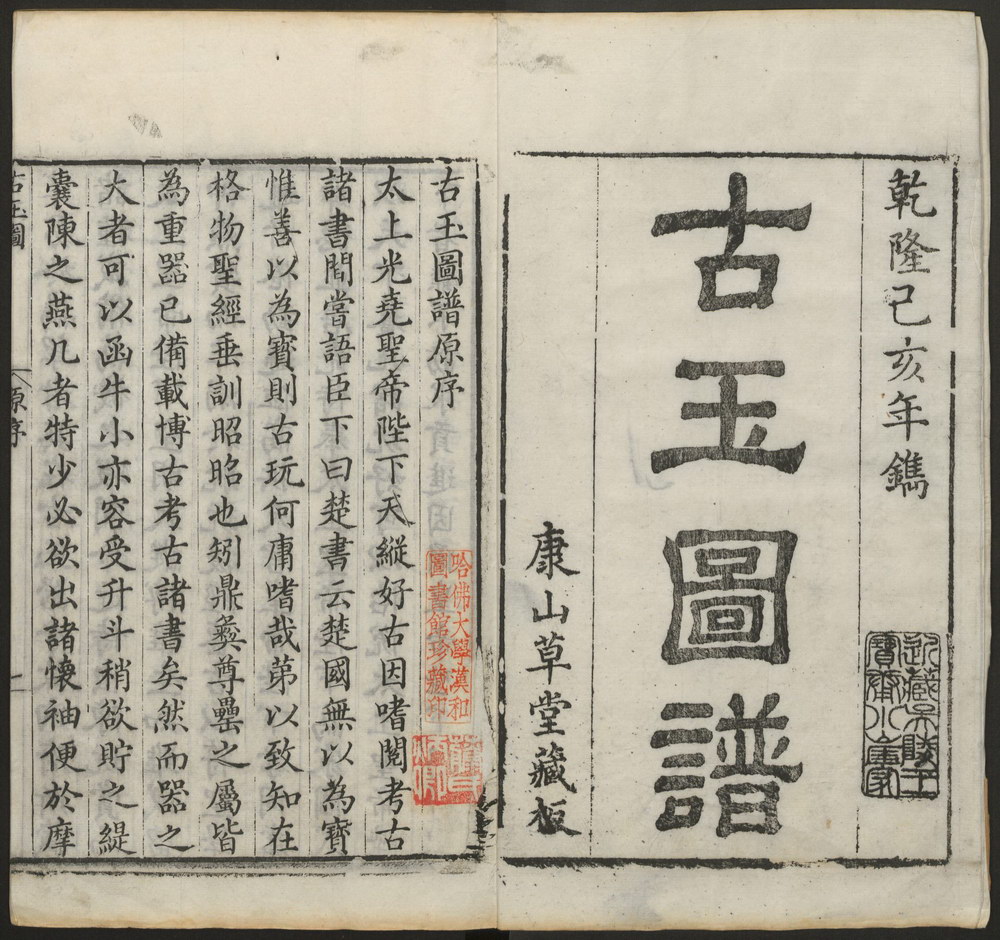 乾隆己亥年鐫
古玉圖譜
康山草堂藏板
古玉圖譜原序
太上光堯聖帝陛下天縱好古因嗜閱考古
諸書閒嘗語臣下曰楚書云楚國無以為寶
惟善以為寶則古玩何庸嗜哉苐以致知在
格物聖經垂訓昭昭也矧鼎彝尊罍之屬皆
為重器已備載博古考古諸書矣然而器之
大者可以函牛小亦容受升斗稍欲貯之緹
囊陳之燕几者特少必欲出諸懷袖便於摩
古玉圖
原序
一
哈佛大學漢和
圖書館珍藏印